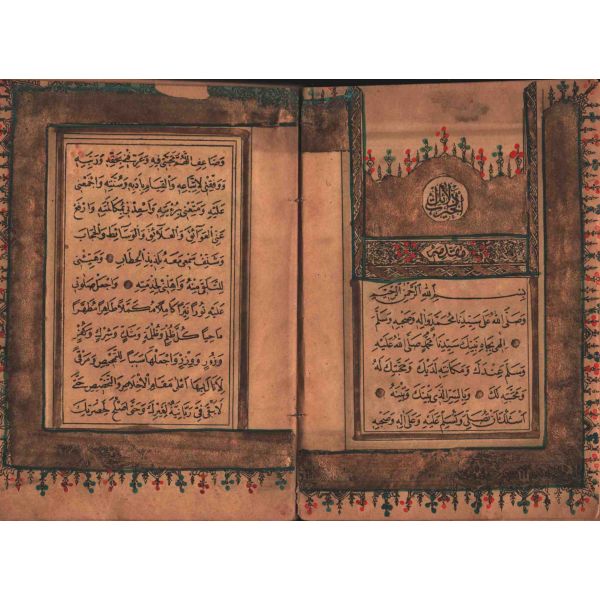 دلائل الخيرات
بسم الله الرحمن الرحيم
وصلى الله على سيدنا محمد واله وصحبه وسلم
الهي بجاه نبيك سيدنا محمد صلى الله عليه
وسلم عندك ومكانته لديك ومحبتك له
ومحبته لك وبالسر الذي بينك وبينه
اسئلك ان تصلي وتسلم عليه وعلى اله وصحبه
وضاعف اللهم محبتي فيه وعرفني بحقه ورتبه
ووفقني لاتباعه والقيام بادبه وسنته واجمعني
عليه ومتعني برؤيته واسعدني بمكالمته وارفع
عني العوائق والعلائق والوسائط والحجاب
وشنف سمعي معه بلذيذ الخطاب وهيئني
للتلقي منه واهلني لخدمته واجعل صلوتي
عليه نورا نيرا كاملا مكملا طاهرا مطهرا
ماحيا كل ظلم وظلمة وشك وشرك وكفر
وزور ووزر واجعلها سببا للتمحيص ومرقى
لانال بها اعلى مقام الاخلاص والتخصيص حتى
لا يبقى في ربانية لغيرك وحتى اصلح لحضرتك